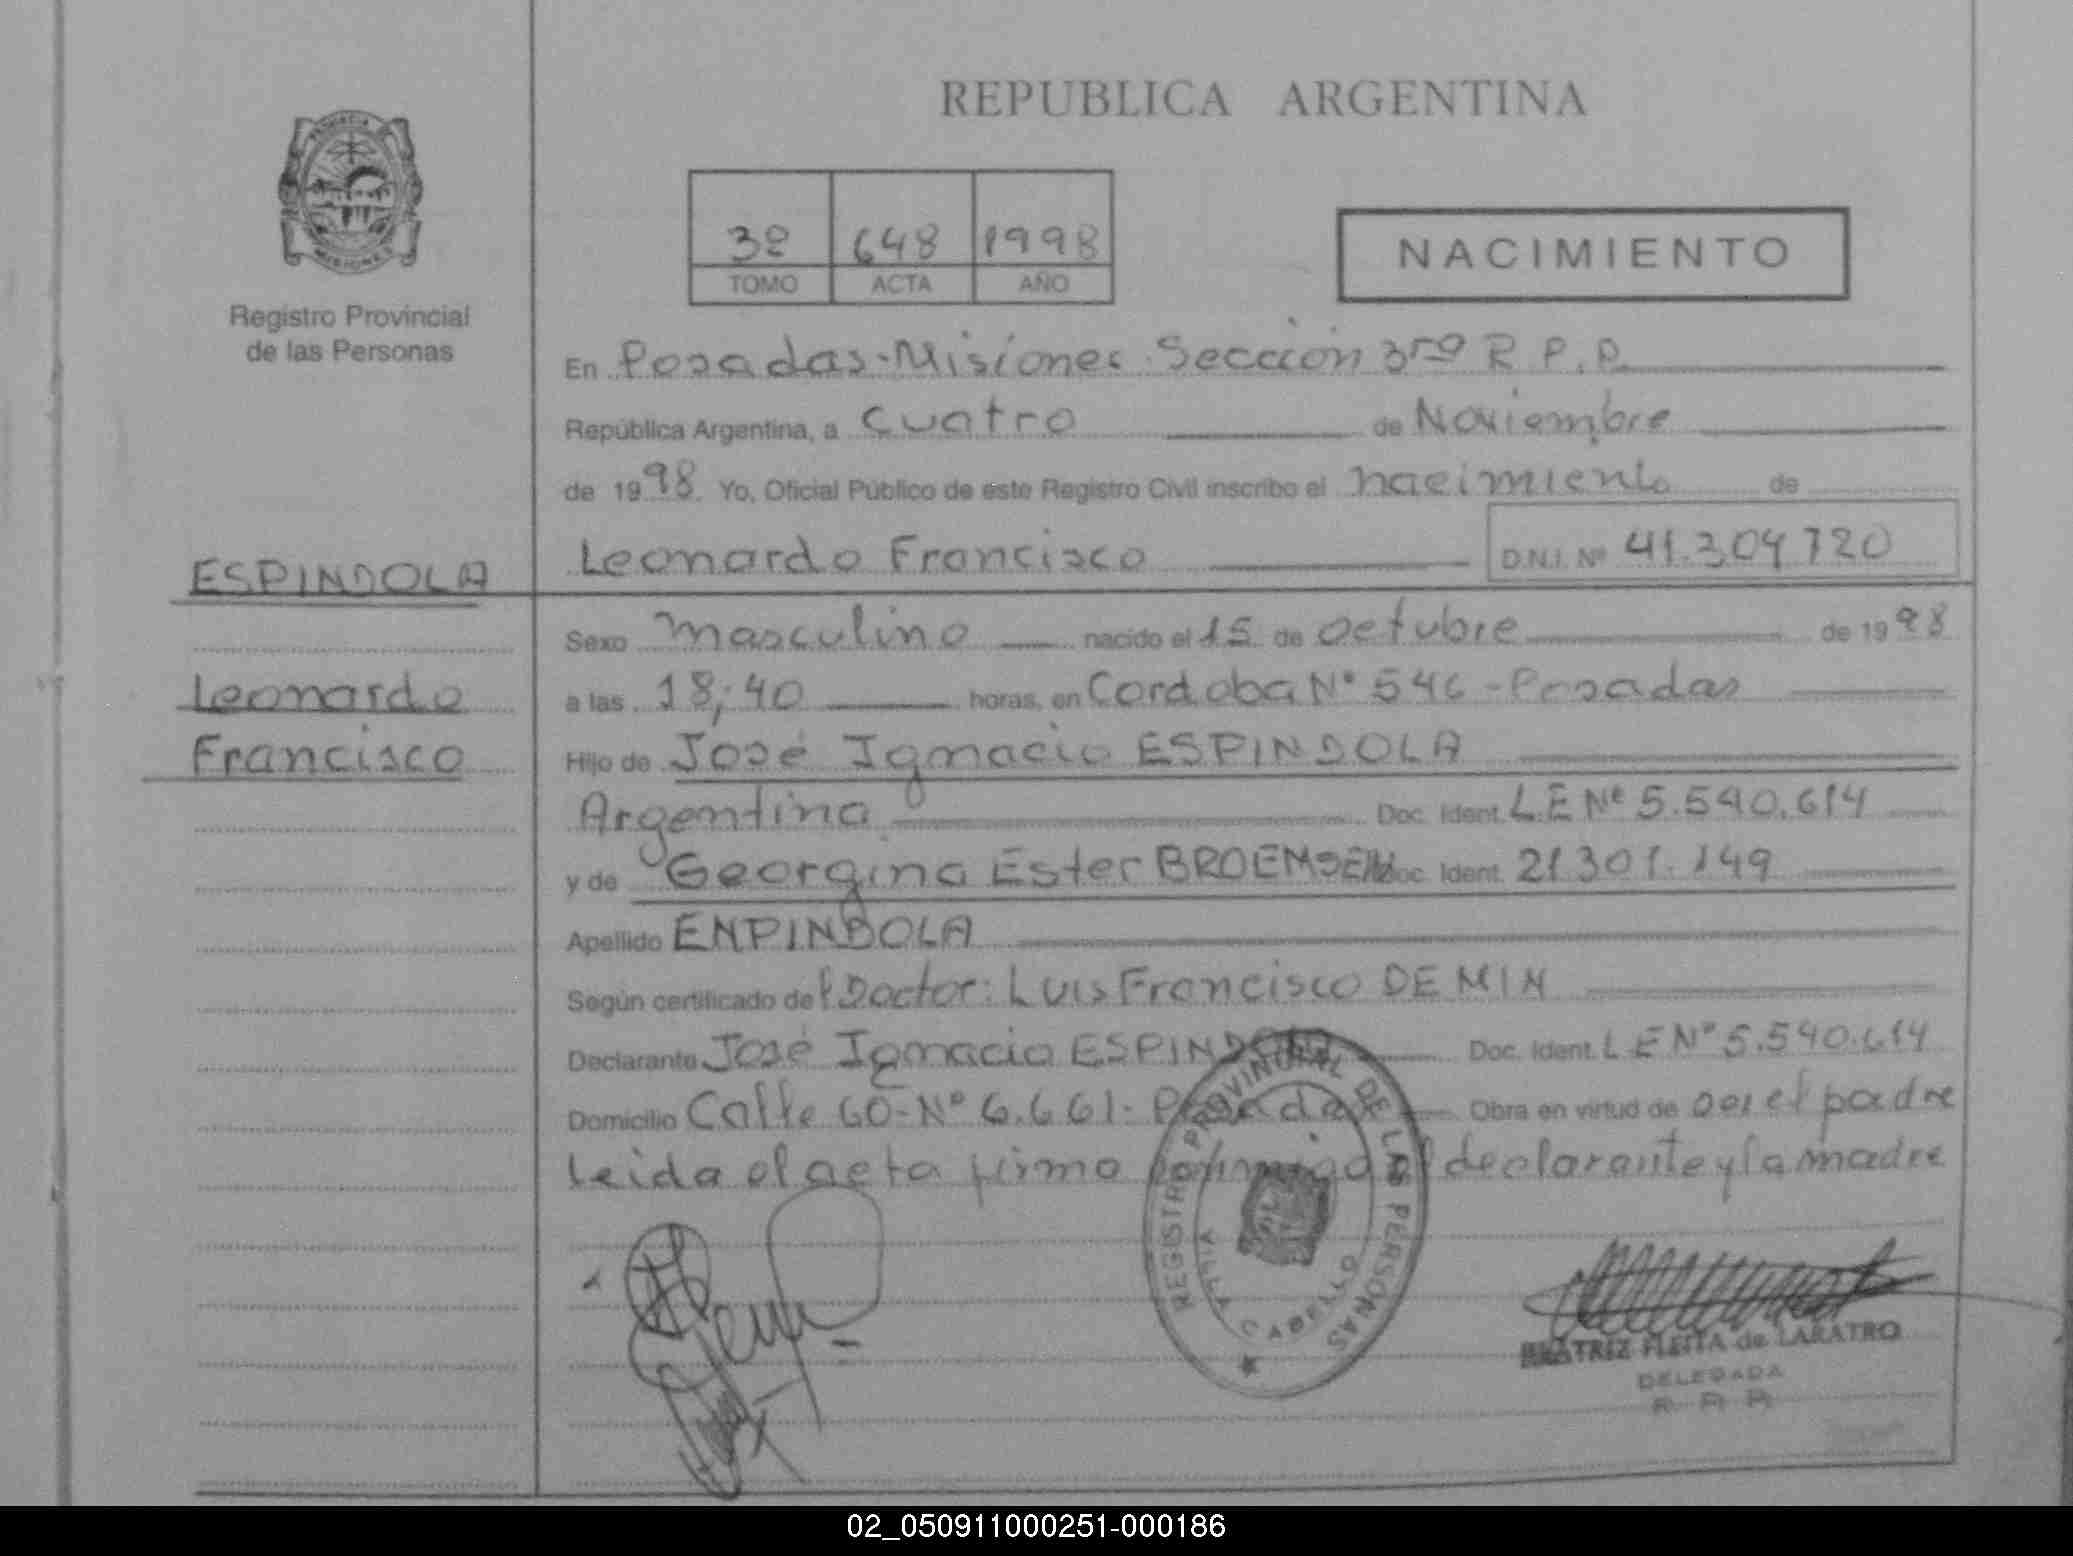 REPUBLICA ARGENTINA
PROVINCIA
MISIONES
Registro Provincial
de las Personas
3º 648 1998
TOMO ACTA AÑO
NACIMIENTO
En Posadas-Misiones Sección 3ra R.P.P.
República Argentina, a cuatro de Noviembre
de 1998. Yo, Oficial Público de este Registro Civil inscribo el nacimiento de
ESPINDOLA Leonardo Francisco D.N.I. Nº 41.304720
Sexo masculino nacido el 15 de octubre de 1998
Leonardo a las 18;40 horas, en Cordoba Nº 546 - Posadas
Francisco Hijo de José Ignacio ESPINDOLA
Argentina Doc. Ident. L.E Nº 5.540.614
y de Georgina Ester BROEMSEN Doc. Ident. 21301.149
Apellido ENPINDOLA
Según certificado del Doctor: Luis Francisco DE MIN
Declarante José Ignacio ESPINDOLA Doc. Ident. L E Nº 5.540.614
Domicilio Calle 60-Nº 6.661- Posadas Obra en virtud de ser el padre
Leida el acta firma conmigo el declarante y la madre
REGISTRO PROVINCIAL DE LAS PERSONAS
VILLA CABELLO
BEATRIZ FLEITA de LARATRO
DELEGADA
R P P
02_050911000251-000186